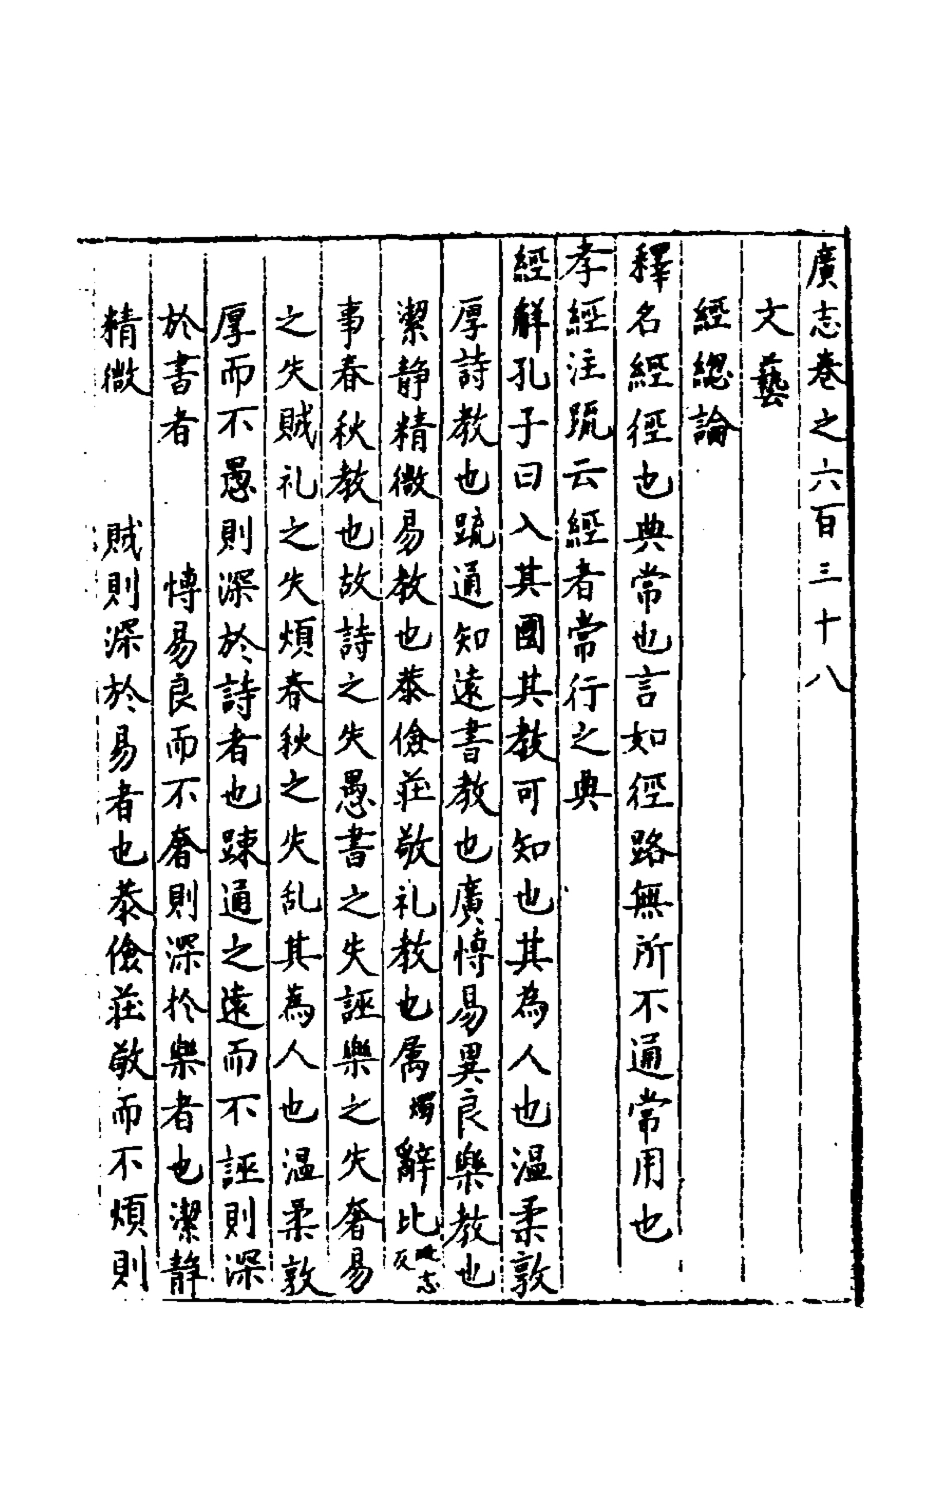 廣志卷之六百三十八
文藝
經總論
釋名經徑也典常也言如徑路無所不通常用也
孝經注䟽云經者常行之典
經解孔子曰入其國其教可知也其為人也温柔敦
厚詩教也䟽通知遠書教也廣慱易異良樂教也
潔静精微易教也恭儉莊敬礼教也属燭辭比毗志反
事春秋教也故詩之失愚書之失誣樂之失奢易
之失賊礼之失煩春秋之失乱其為人也温柔敦
厚而不愚則深於詩者也踈通之遠而不誣則深
於書者 慱易良而不奢則深於樂者也潔静
精微 賊則深於易者也恭儉莊敬而不煩則